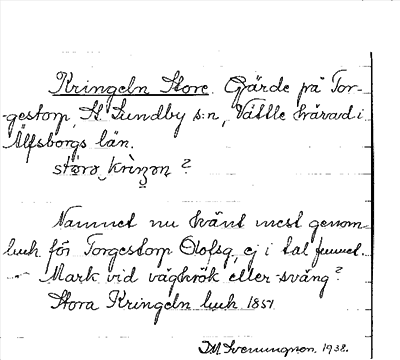 Kringeln Store. Gärde på Tor-
gestorp, St. Lundby s:n, Vättle härad i
Älfsborgs län.
störə kriŋən ?
Namnet nu känt mest genom
luch för Torgestorp Olofsg, ej i tal funnet.
Mark vid vägkrök eller -sväng?
Stora Kringeln luch 1851
Svenungson. 1938.